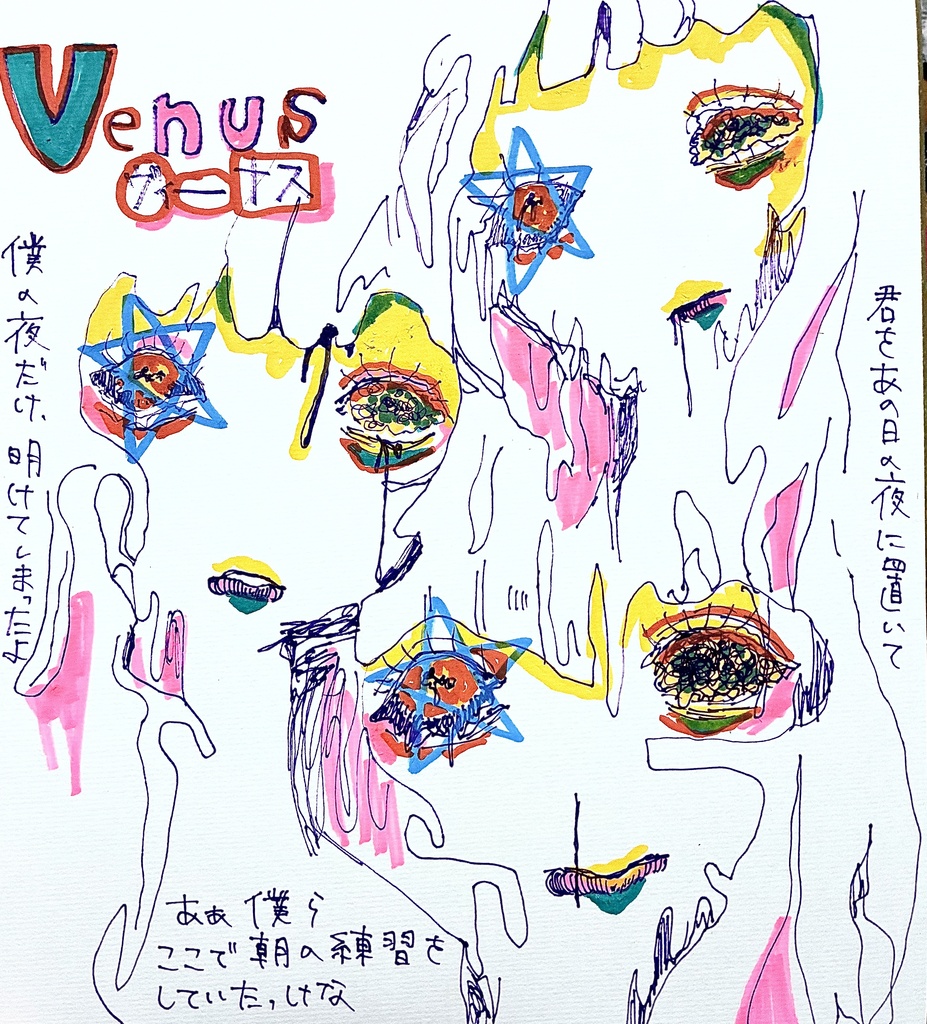 Venus
ヴィーナス
君をあの日の夜に置いて
僕の夜だけ、明けてしまったよ
あぁ僕ら
ここで朝の練習を
していたっけな